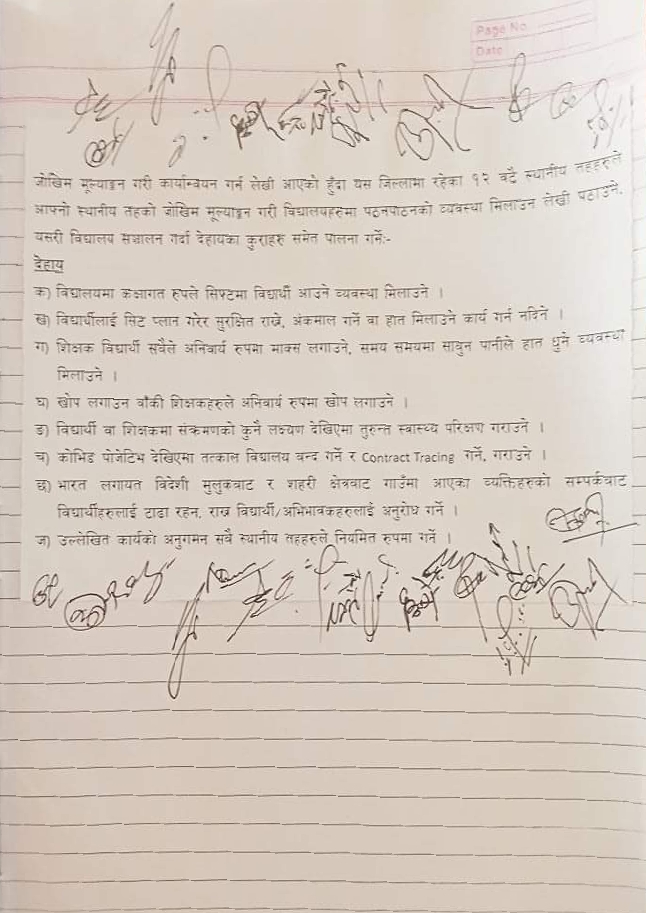 Page No
Date
जोखिम मूल्याङ्कन गरी कार्यान्वयन गर्न लेखी आएको हुँदा यस जिल्लामा रहेका १२ वटै स्थानीय तहहरुले
आफ्नो स्थानीय तहको जोखिम मूल्याङ्कन गरी विद्यालयहरुमा पठनपाठनको व्यवस्था मिलाउन लेखी पठाउने,
यसरी विद्यालय सञ्चालन गर्दा देहायका कुराहरु समेत पालना गर्नेः-
देहाय
क) विद्यालयमा कक्षागत रुपले सिफ्टमा विद्यार्थी आउने व्यवस्था मिलाउने ।
ख) विद्यार्थीलाई सिट प्लान गरेर सुरक्षित राख्ने, अंकमाल गर्ने वा हात मिलाउने कार्य गर्न नदिने ।
ग) शिक्षक विद्यार्थी सवैले अनिवार्य रुपमा माक्स लगाउने, समय समयमा साबुन पानीले हात धुने व्यवस्था
मिलाउने ।
घ) खोप लगाउन वाँकी शिक्षकहरुले अनिवार्य रुपमा खोप लगाउने ।
ङ) विद्यार्थी वा शिक्षकमा संक्रमणको कुनै लक्ष्यण देखिएमा तुरुन्त स्वास्थ्य परिक्षण गराउने ।
च) कोभिड पोजेटिभ देखिएमा तत्काल विद्यालय वन्द गर्ने र Contract Tracing गर्ने, गराउने ।
छ) भारत लगायत विदेशी मुलुकवाट र शहरी क्षेत्रवाट गाउँमा आएका व्यक्तिहरुको सम्पर्कवाट
विद्यार्थीहरुलाई टाढा रहन, राख्न विद्यार्थी/अभिभावकहरुलाई अनुरोध गर्ने ।
ज) उल्लेखित कार्यको अनुगमन सवै स्थानीय तहहरुले नियमित रुपमा गर्ने ।